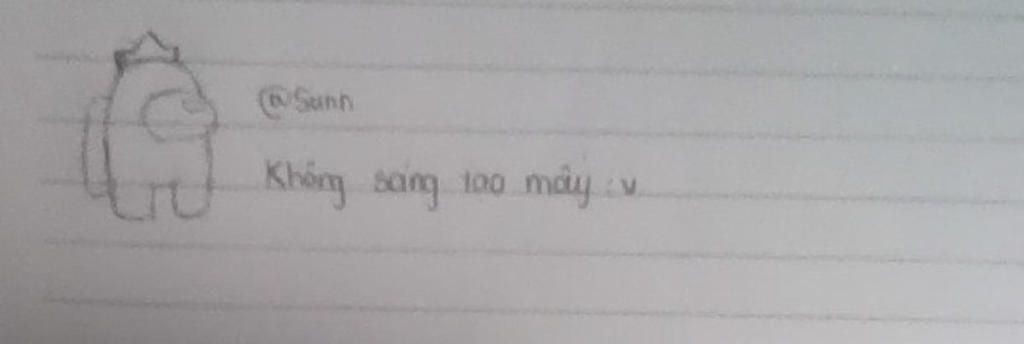 @Sunn
Không sáng tạo mấy :v